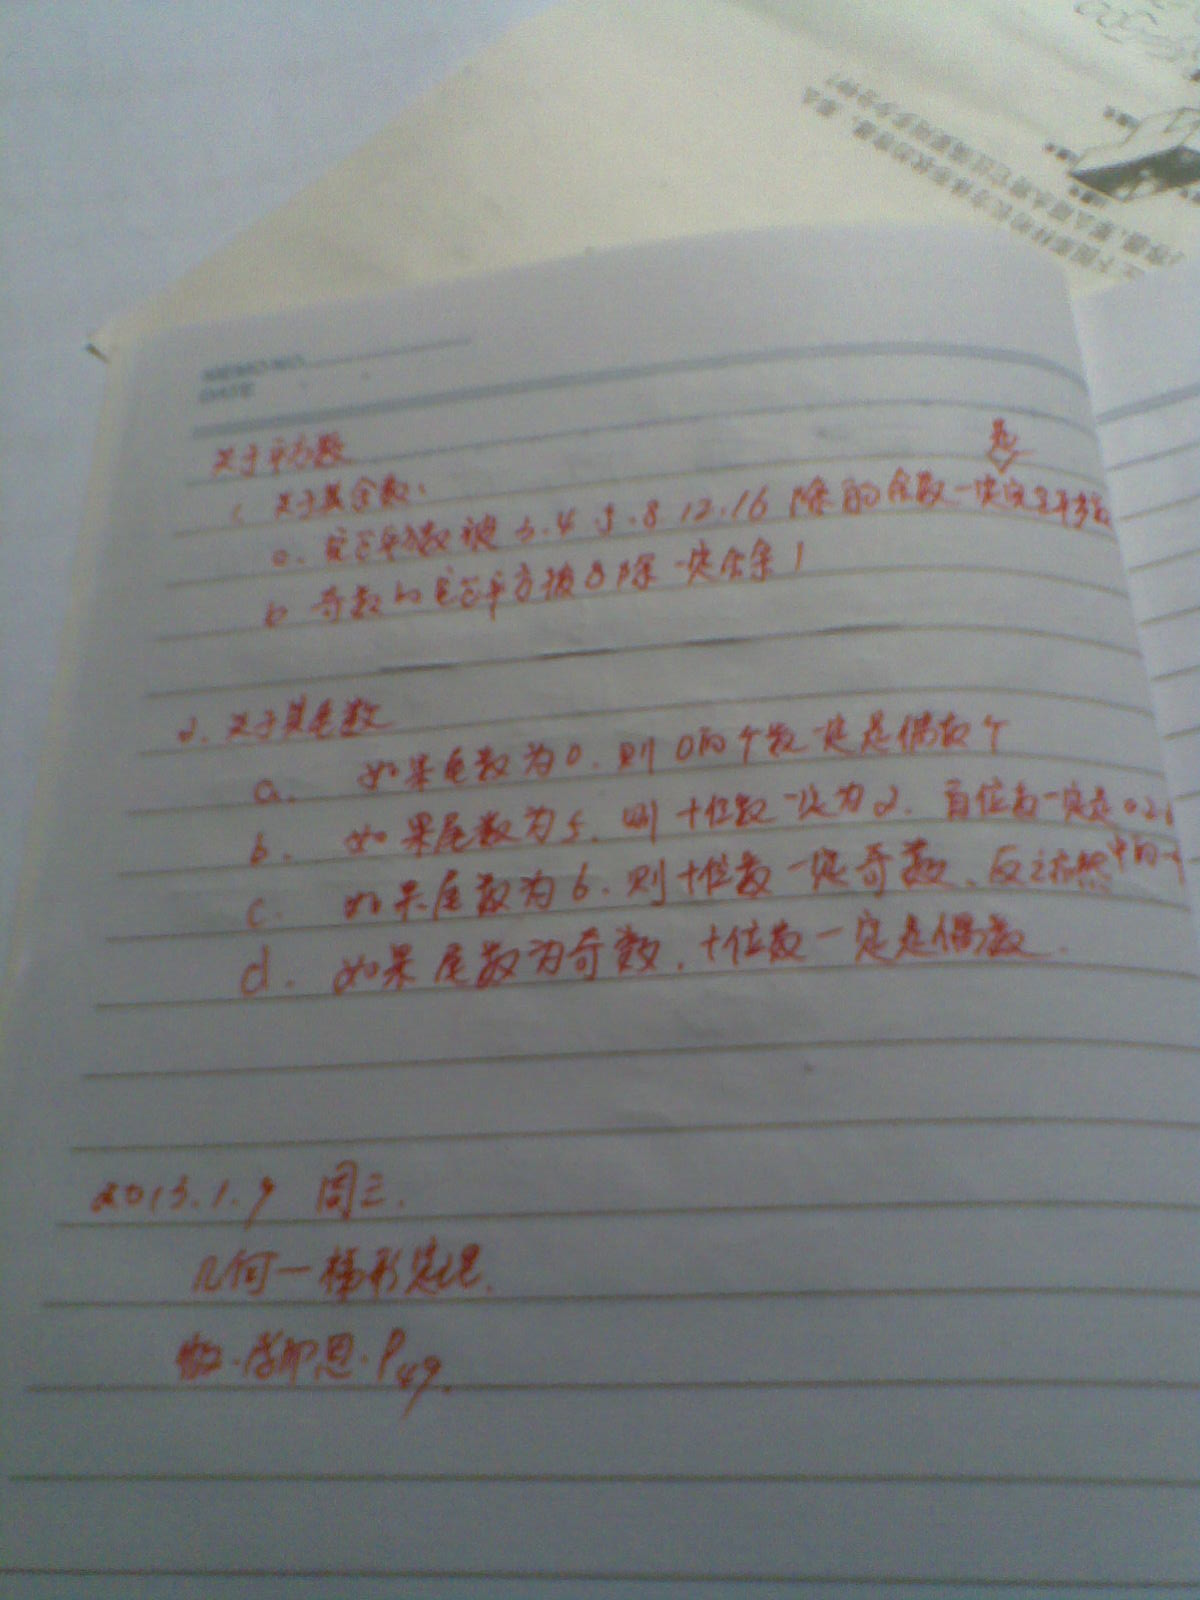 MEMO NO.
DATE
关于平方数
1. 关于其余数:
是
a. 完全平方数被 3.4 5.8 12.16 除的余数一定完全平方数
b 奇数的完全平方被8除一定会余1
2. 关于其尾数
a. 如果尾数为0.则0的个数一定是偶数个
b. 如果尾数为5.则十位数一定为2.百位数一定是0.2.6
中的一个
c. 如果尾数为6.则十位数一定奇数、反之亦然
d. 如果尾数为奇数.十位数一定是偶数.
2013.1.9 周三.
几何一梯形定理.
P49.